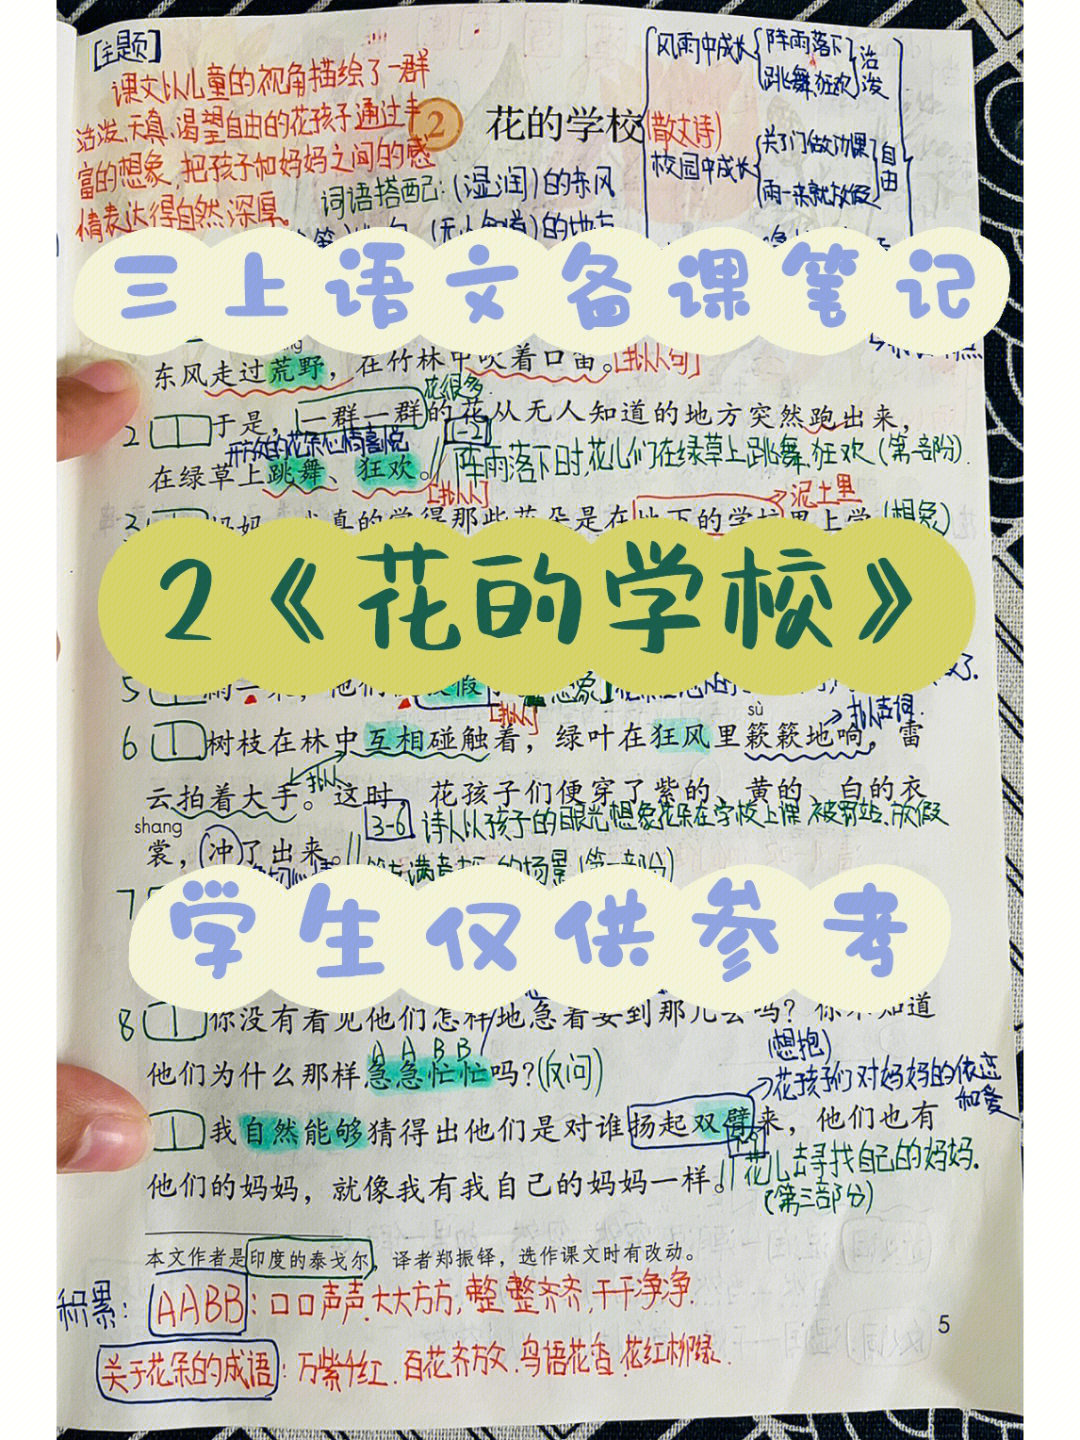 [主题]
课文以儿童的视角描绘了一群
活泼、天真、渴望自由的花孩子通过丰
富的想象,把孩子和妈妈之间的感
情表达得自然、深厚。
2 花的学校(散文诗)
风雨中成长
阵雨落下
跳舞、狂欢
活泼
校园中成长
关了门做功课
雨一来就放假
自由
词语搭配:(湿润)的东风
(无人知道)的地方
三上语文备课笔记
东风走过荒野,在竹林中吹着口笛。[拟人句]
花很多
2 1 于是,一群一群的花从无人知道的地方突然跑出来,
开放的花朵心情喜悦
1-2
在绿草上跳舞、狂欢。//阵雨落下时,花儿们在绿草上跳舞、狂欢(第一部份).
[拟人]
泥土里
3 妈妈,我真的觉得那些花朵是在地下的学校里上学(想象)
2《花的学校》
5 1 雨一来,他们便放假了。
[拟人]
sù
拟声词.
6 1 树枝在林中互相碰触着,绿叶在狂风里簌簌地响,雷
拟人
云拍着大手。这时,花孩子们便穿了紫的、黄的、白的衣
shang
3-6 诗人以孩子的眼光想象花朵在学校上课、被罚站、放假
裳,冲了出来。//
的场景(第二部分)
7
学生仅供参考
8 1 你没有看见他们怎样地急着要到那儿去吗?你不知道
A A B B
(想抱)
他们为什么那样急急忙忙吗?(反问)
花孩子们对妈妈的依恋
和爱
1 我自然能够猜得出他们是对谁扬起双臂来,他们也有
他们的妈妈,就像我有我自己的妈妈一样。//花儿去寻找自己的妈妈.
(第三部分)
本文作者是印度的泰戈尔,译者郑振铎,选作课文时有改动。
积累:AABB:口口声声.大大方方,整整齐齐,干干净净.
5
关于花朵的成语:万紫千红.百花齐放.鸟语花香.花红柳绿.